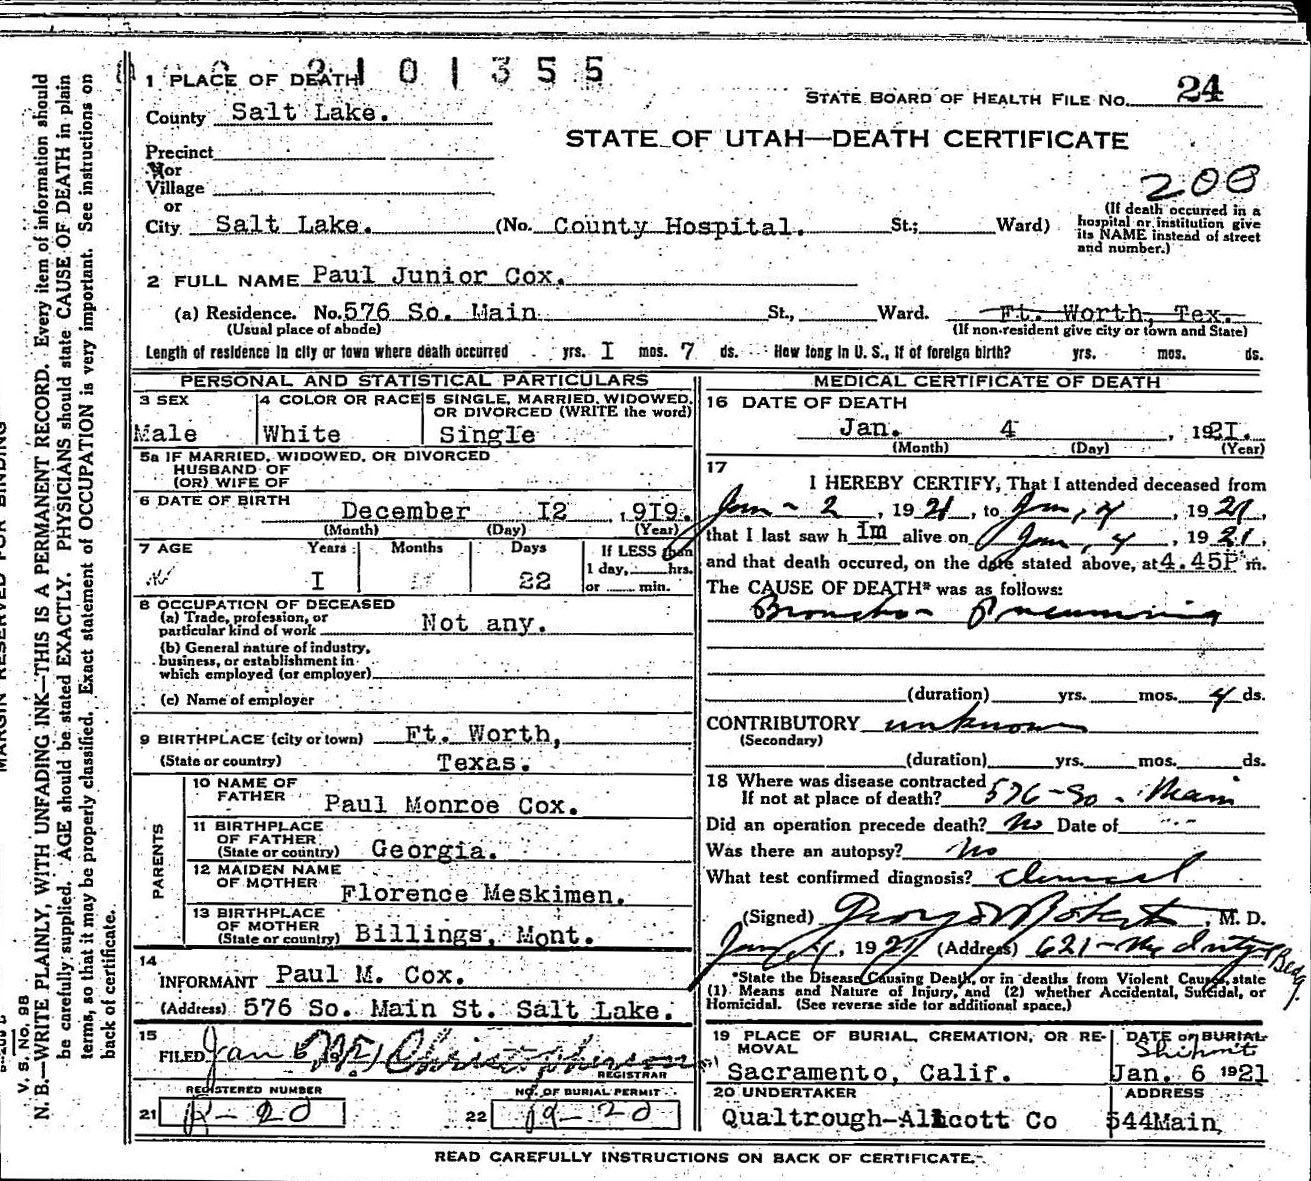 2101355
1 PLACE OF DEATH
STATE BOARD OF HEALTH FILE NO. 24
County Salt Lake.
STATE OF UTAH—DEATH CERTIFICATE
Precinct
or
Village
or
200
(If death occurred in a
hospital or institution give
its NAME instead of street
and number.)
City Salt Lake. (No. County Hospital. St.; Ward)
2 FULL NAME Paul Junior Cox.
(a) Residence. No. 576 So. Main St., Ward. Ft. Worth, Tex.
(Usual place of abode) (If non-resident give city or town and State)
Length of residence in city or town where death occurred yrs. I mos. 7 ds. How long in U. S., if of foreign birth? yrs. mos. ds.
PERSONAL AND STATISTICAL PARTICULARS
3 SEX 4 COLOR OR RACE 5 SINGLE, MARRIED, WIDOWED,
OR DIVORCED (WRITE the word)
Male White Single
5a IF MARRIED, WIDOWED, OR DIVORCED
HUSBAND OF
(OR) WIFE OF
6 DATE OF BIRTH
December I2 , 1919.
(Month) (Day) (Year)
7 AGE Years Months Days If LESS than
1 day, hrs.
I 22 or min.
8 OCCUPATION OF DECEASED
(a) Trade, profession, or
particular kind of work Not any.
(b) General nature of industry,
business, or establishment in
which employed (or employer)
(c) Name of employer
9 BIRTHPLACE (city or town) Ft. Worth,
(State or country) Texas.
PARENTS
10 NAME OF
FATHER Paul Monroe Cox.
11 BIRTHPLACE
OF FATHER
(State or country) Georgia.
12 MAIDEN NAME
OF MOTHER Florence Meskimen.
13 BIRTHPLACE
OF MOTHER
(State or country) Billings, Mont.
14
INFORMANT Paul M. Cox.
(Address) 576 So. Main St. Salt Lake.
15
FILED Jan 6
REGISTRAR
REGISTERED NUMBER NO. OF BURIAL PERMIT
21 22
MEDICAL CERTIFICATE OF DEATH
16 DATE OF DEATH
Jan. 4 , 1921.
(Month) (Day) (Year)
17
I HEREBY CERTIFY, That I attended deceased from
Jan - 2 , 1921, to Jan, 4 , 1921,
that I last saw h Im alive on Jan, 4 , 1921,
and that death occured, on the date stated above, at 4.45P m.
The CAUSE OF DEATH* was as follows:
Broncho - Pneumonia
(duration) yrs. mos. 4 ds.
CONTRIBUTORY unknown
(Secondary)
(duration) yrs. mos. ds.
18 Where was disease contracted
If not at place of death? 576 - So - Main
Did an operation precede death? No Date of
Was there an autopsy? No
What test confirmed diagnosis? clinical
(Signed) M. D.
Jan 4, 1921 (Address) 621 - Bldg.
*State the Disease Causing Death, or in deaths from Violent Causes, state
(1) Means and Nature of Injury, and (2) whether Accidental, Suicidal, or
Homicidal. (See reverse side for additional space.)
19 PLACE OF BURIAL, CREMATION, OR RE-
MOVAL
DATE OF BURIAL
Shipm't
Sacramento, Calif. Jan. 6 1921
20 UNDERTAKER ADDRESS
Qualtrough-Allcott Co 544 Main
READ CAREFULLY INSTRUCTIONS ON BACK OF CERTIFICATE.
MARGIN RESERVED FOR BINDING
V. S. NO. 98
N. B.—WRITE PLAINLY, WITH UNFADING INK—THIS IS A PERMANENT RECORD. Every item of information should
be carefully supplied. AGE should be stated EXACTLY. PHYSICIANS should state CAUSE OF DEATH in plain
terms, so that it may be properly classified. Exact statement of OCCUPATION is very important. See instructions on
back of certificate.